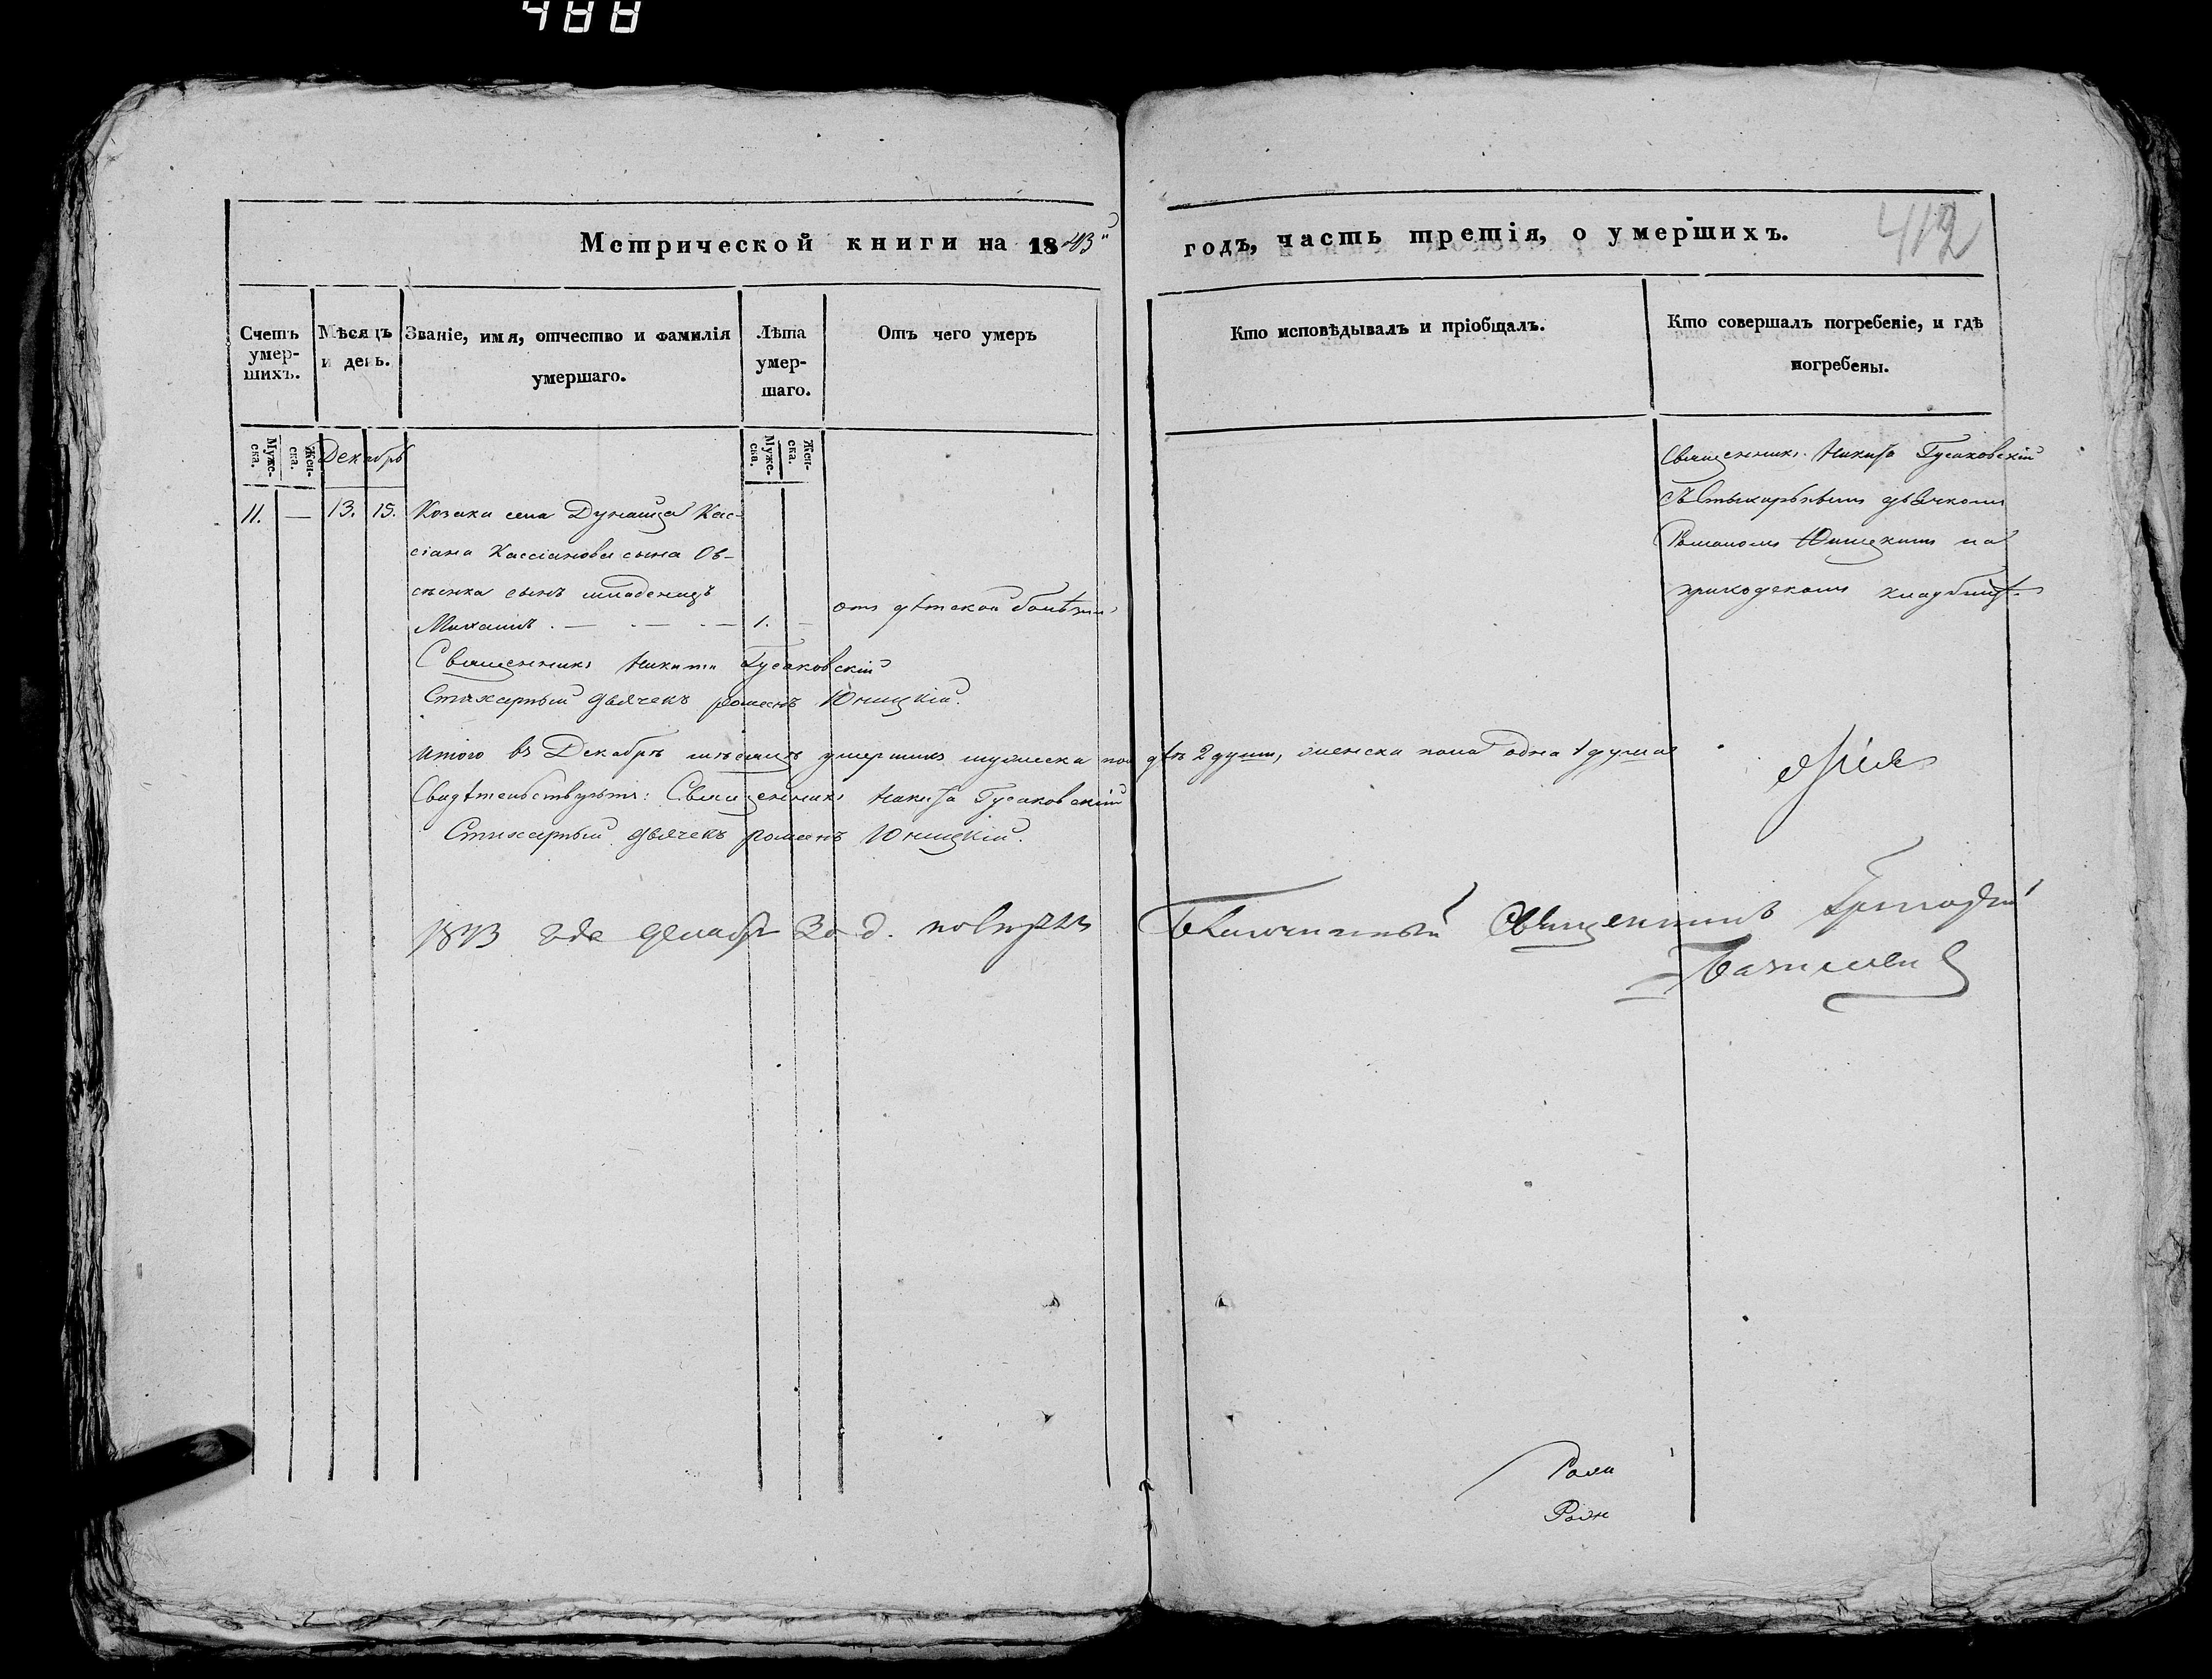 488
Метрической книги на 1843
годъ, часть третія, о умершихъ.
412
Счетъ умер-шихъ.
Мѣсяцъ и день.
Званіе, имя, отчество и фамилія умершаго.
Лѣта умер-шаго.
Отъ чего умеръ
Кто исповѣдывалъ и пріобщалъ.
Кто совершалъ погребеніе, и гдѣ погребены.
Муже-ска.
Жен-ска.
Декабрь
Муже-ска.
Жен-ска.
11. — 13. 15. Козака села Дунайца Кас-
сіана Кассіанова сына Ов-
сіенка сынъ младенецъ
Михаилъ . — . — . — 1. — отъ дѣтской болѣзни
Священникъ Никита Гусаковскій
съ Стихарнымъ дьячкомъ
Романомъ Юницкимъ на
приходскомъ кладбищѣ
Священникъ Никита Гусаковскій
Стихарный дьячекъ Романъ Юницкій.
Итого въ Декабрѣ мѣсяцѣ умершихъ мужеска пола двѣ 2 души, женска пола одна 1 душа
Свидѣтельствуютъ: Священникъ Никита Гусаковскій
Стихарный дьячекъ Романъ Юницкій.
1843 года декабря 30 д. повѣрялъ Благочинный Священникъ Григорій
Базилевич